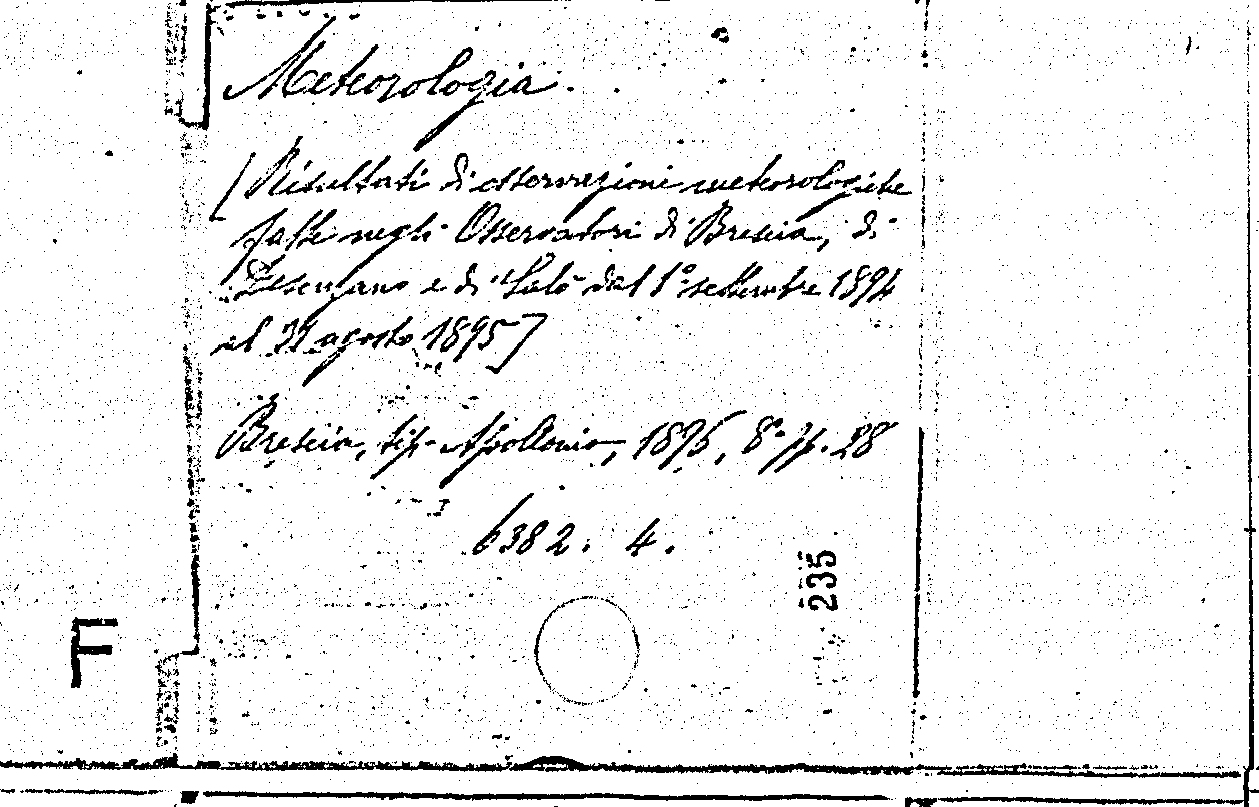 Meteorologia.
[Risultati di osservazioni meteorologiche
fatte negli Osservatori di Brescia, di
Desenzano e di Salò dal 1° settembre 1894
al 31 agosto 1895]
Brescia, tip. Apollonio, 1895, 8° pp. 28
6382. 4.
235
F